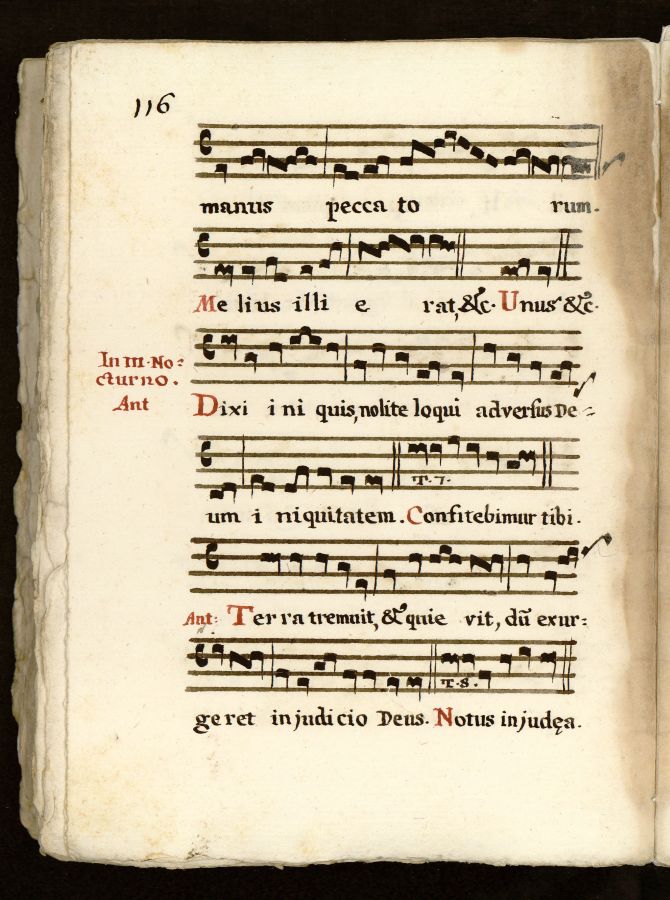 116
manus pecca to rum.
Me lius illi e rat, &c. Unus &c.
In III. No=
cturno.
Ant
Dixi ini quis, nolite loqui adversus De=
um i niquitatem. Confitebimur tibi.
T. 7.
Ant: Ter ra tremuit, & quie vit, dũ exur=
ge ret in judi cio Deus. Notus in judęa.
T. 8.